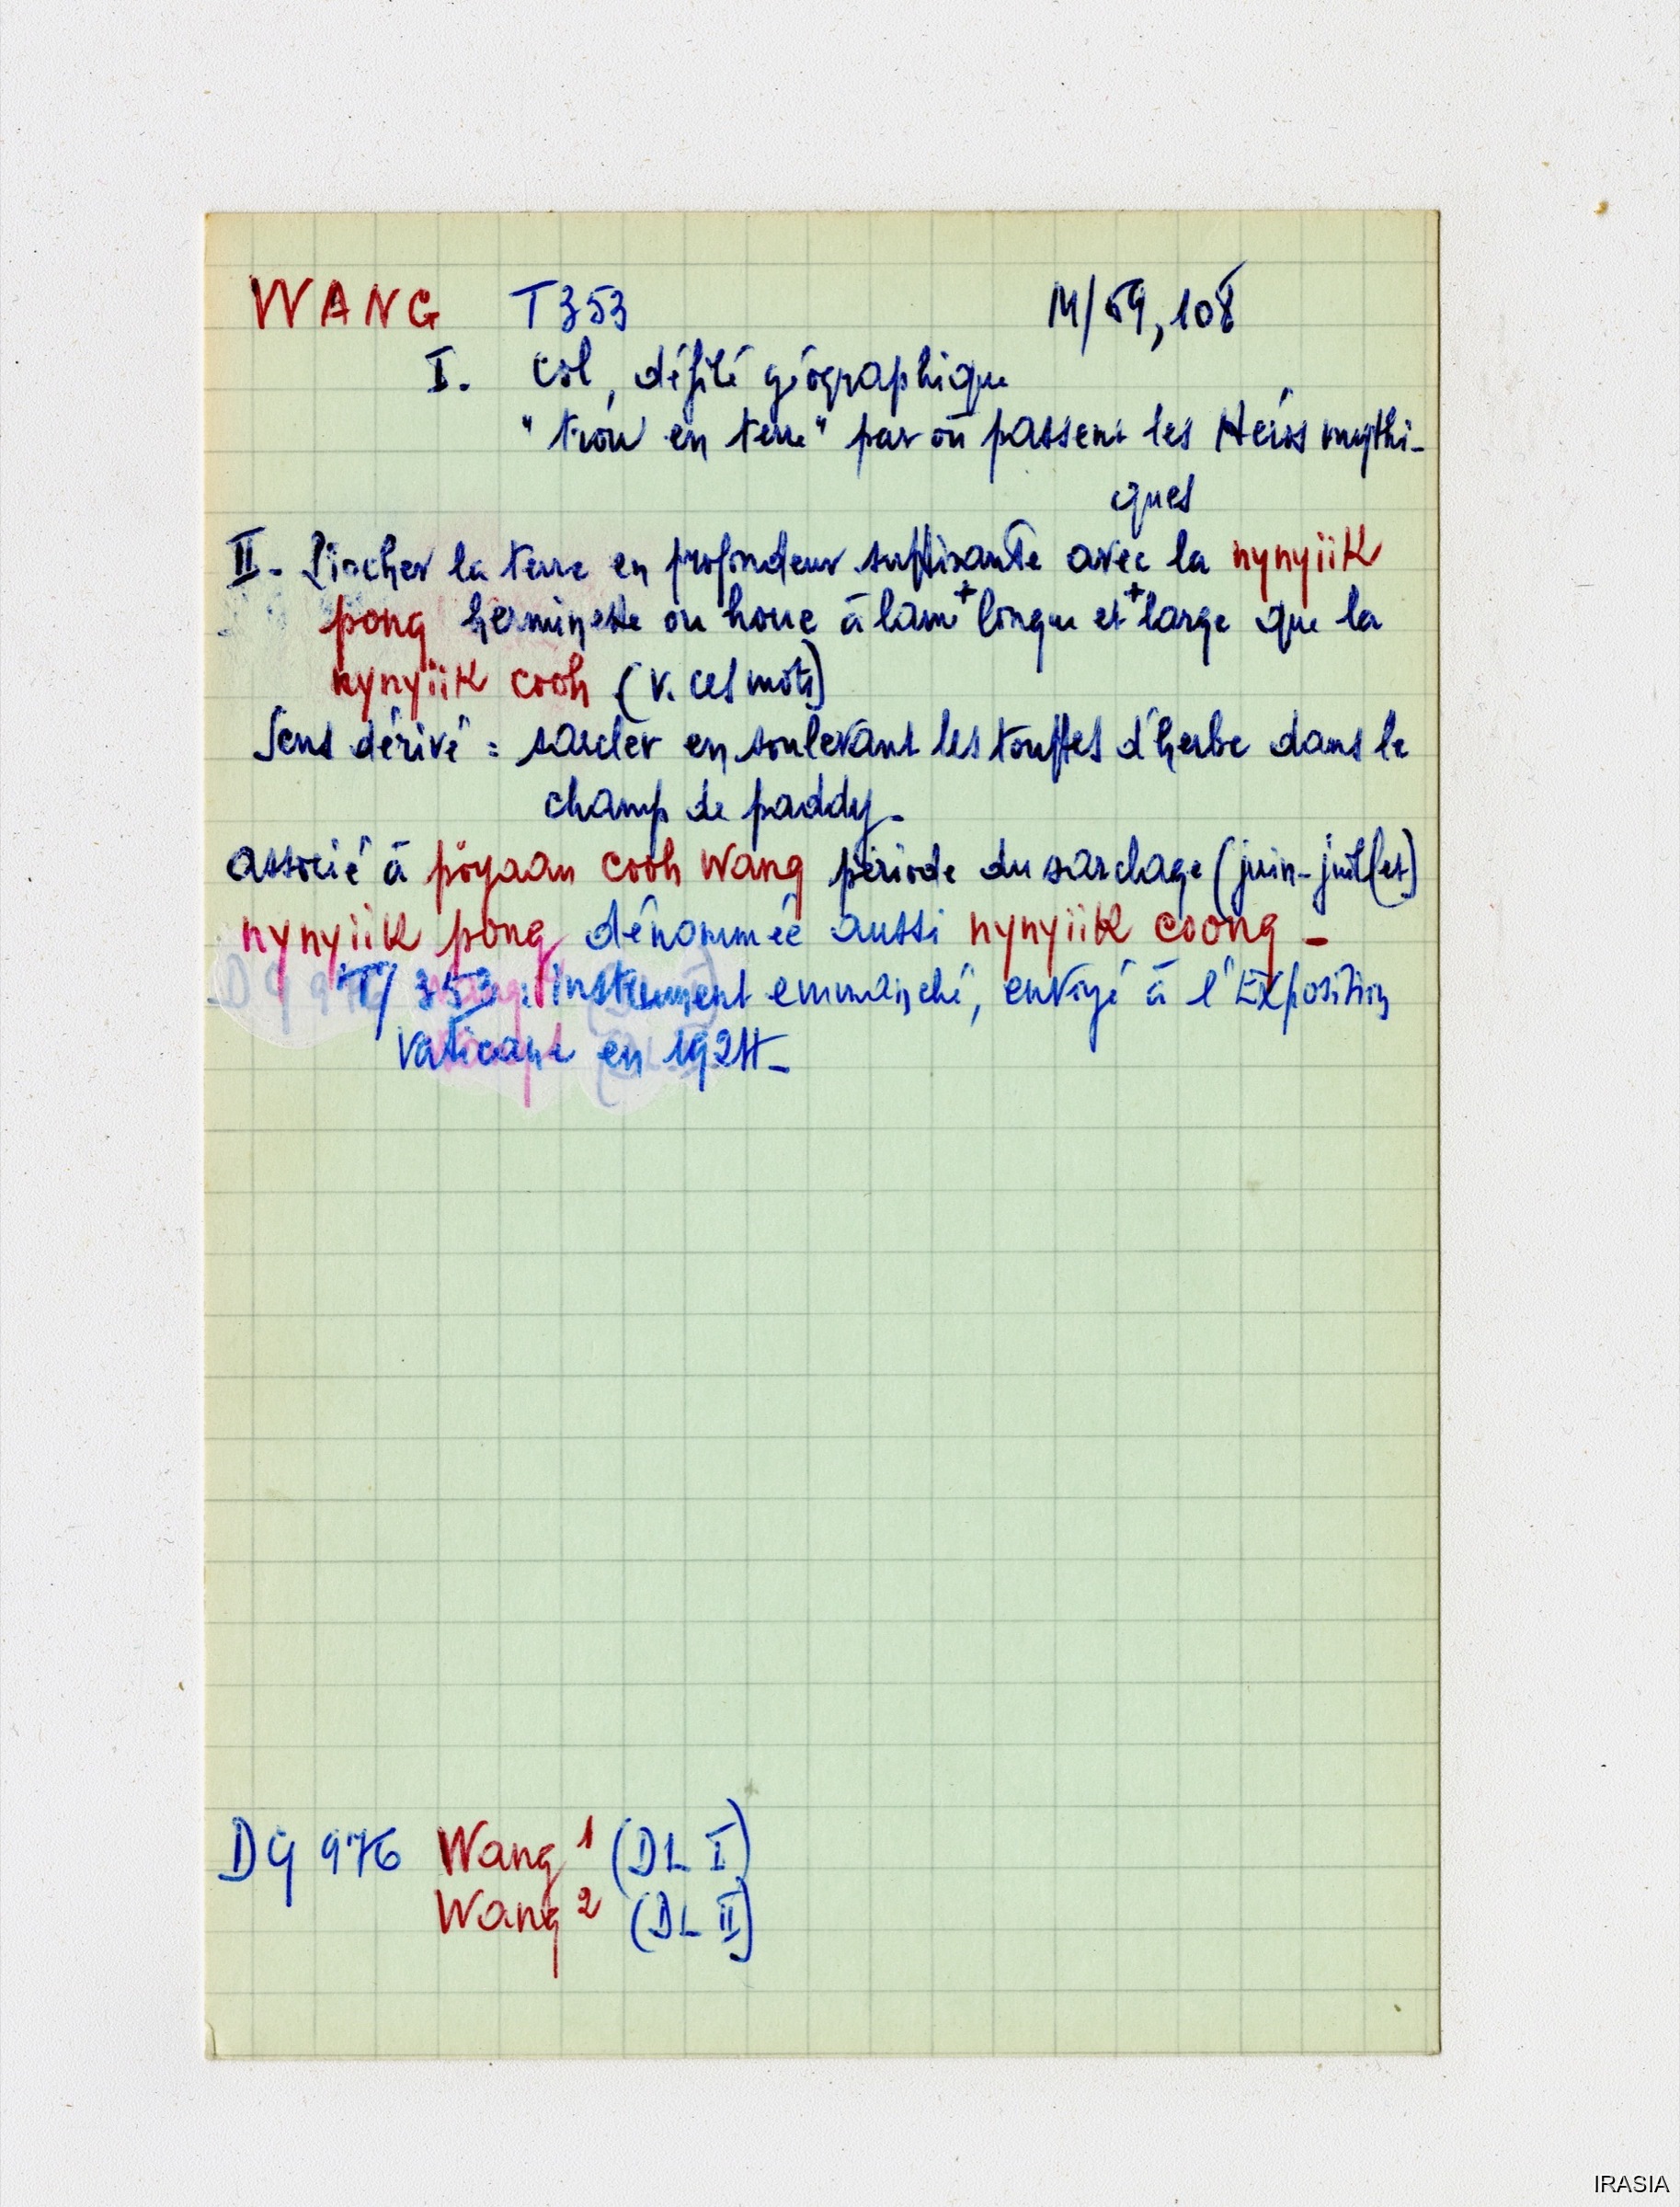 WANG T353 M/59, 108
I. Col, défilé géographique
"trou en terre" par où passent les Héros mythi-
ques
II. Piocher la terre en profondeur suffisante avec la nynyiik
pong herminette ou houe à lame + longue et + large que la
nynyiik cooh (v. ces mots)
Sens dérivé : sarcler en soulevant les touffes d'herbe dans le
champ de paddy.
associé à póyaan cooh wang période du sarclage (juin-juillet)
nynyiik pong dénommée aussi nynyiik coong -
T/ 353 : instrument emmanché, envoyé à l'Exposition
Vaticane en 1924-
DG 976 Wang 1 (DL I)
Wang 2 (DL II)
IRASIA